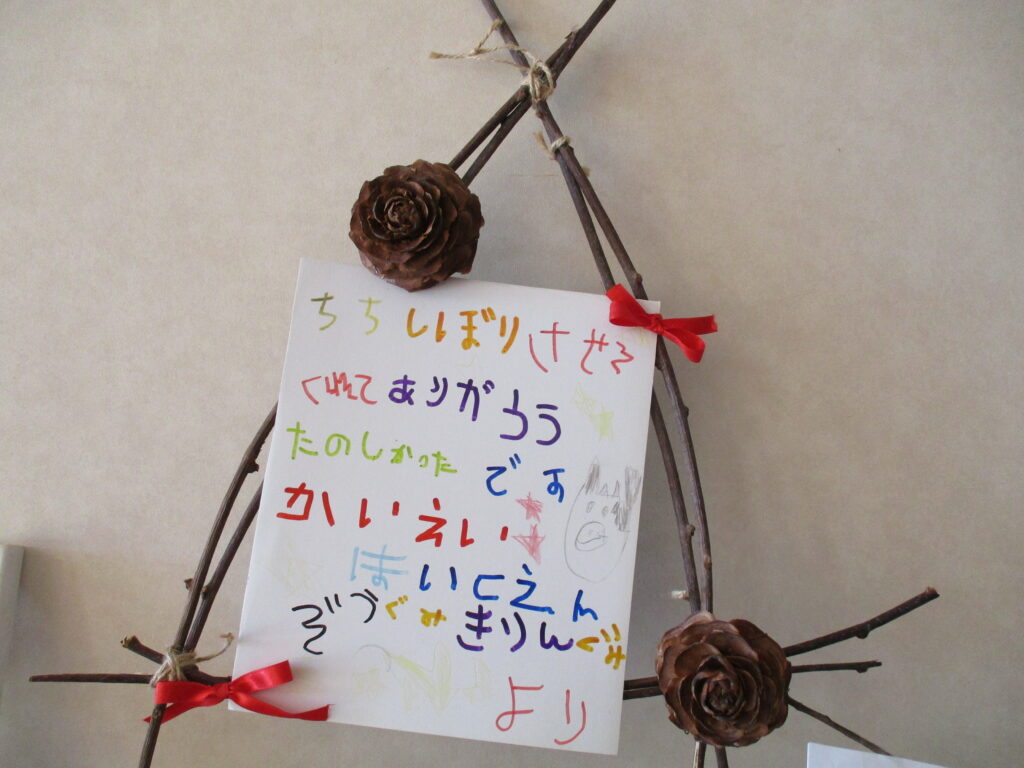 ちちしぼりさせろ
くれてありがうう
たのしかったです
かいえい
ほいくえん
ぞうぐみきりんぐみ
より